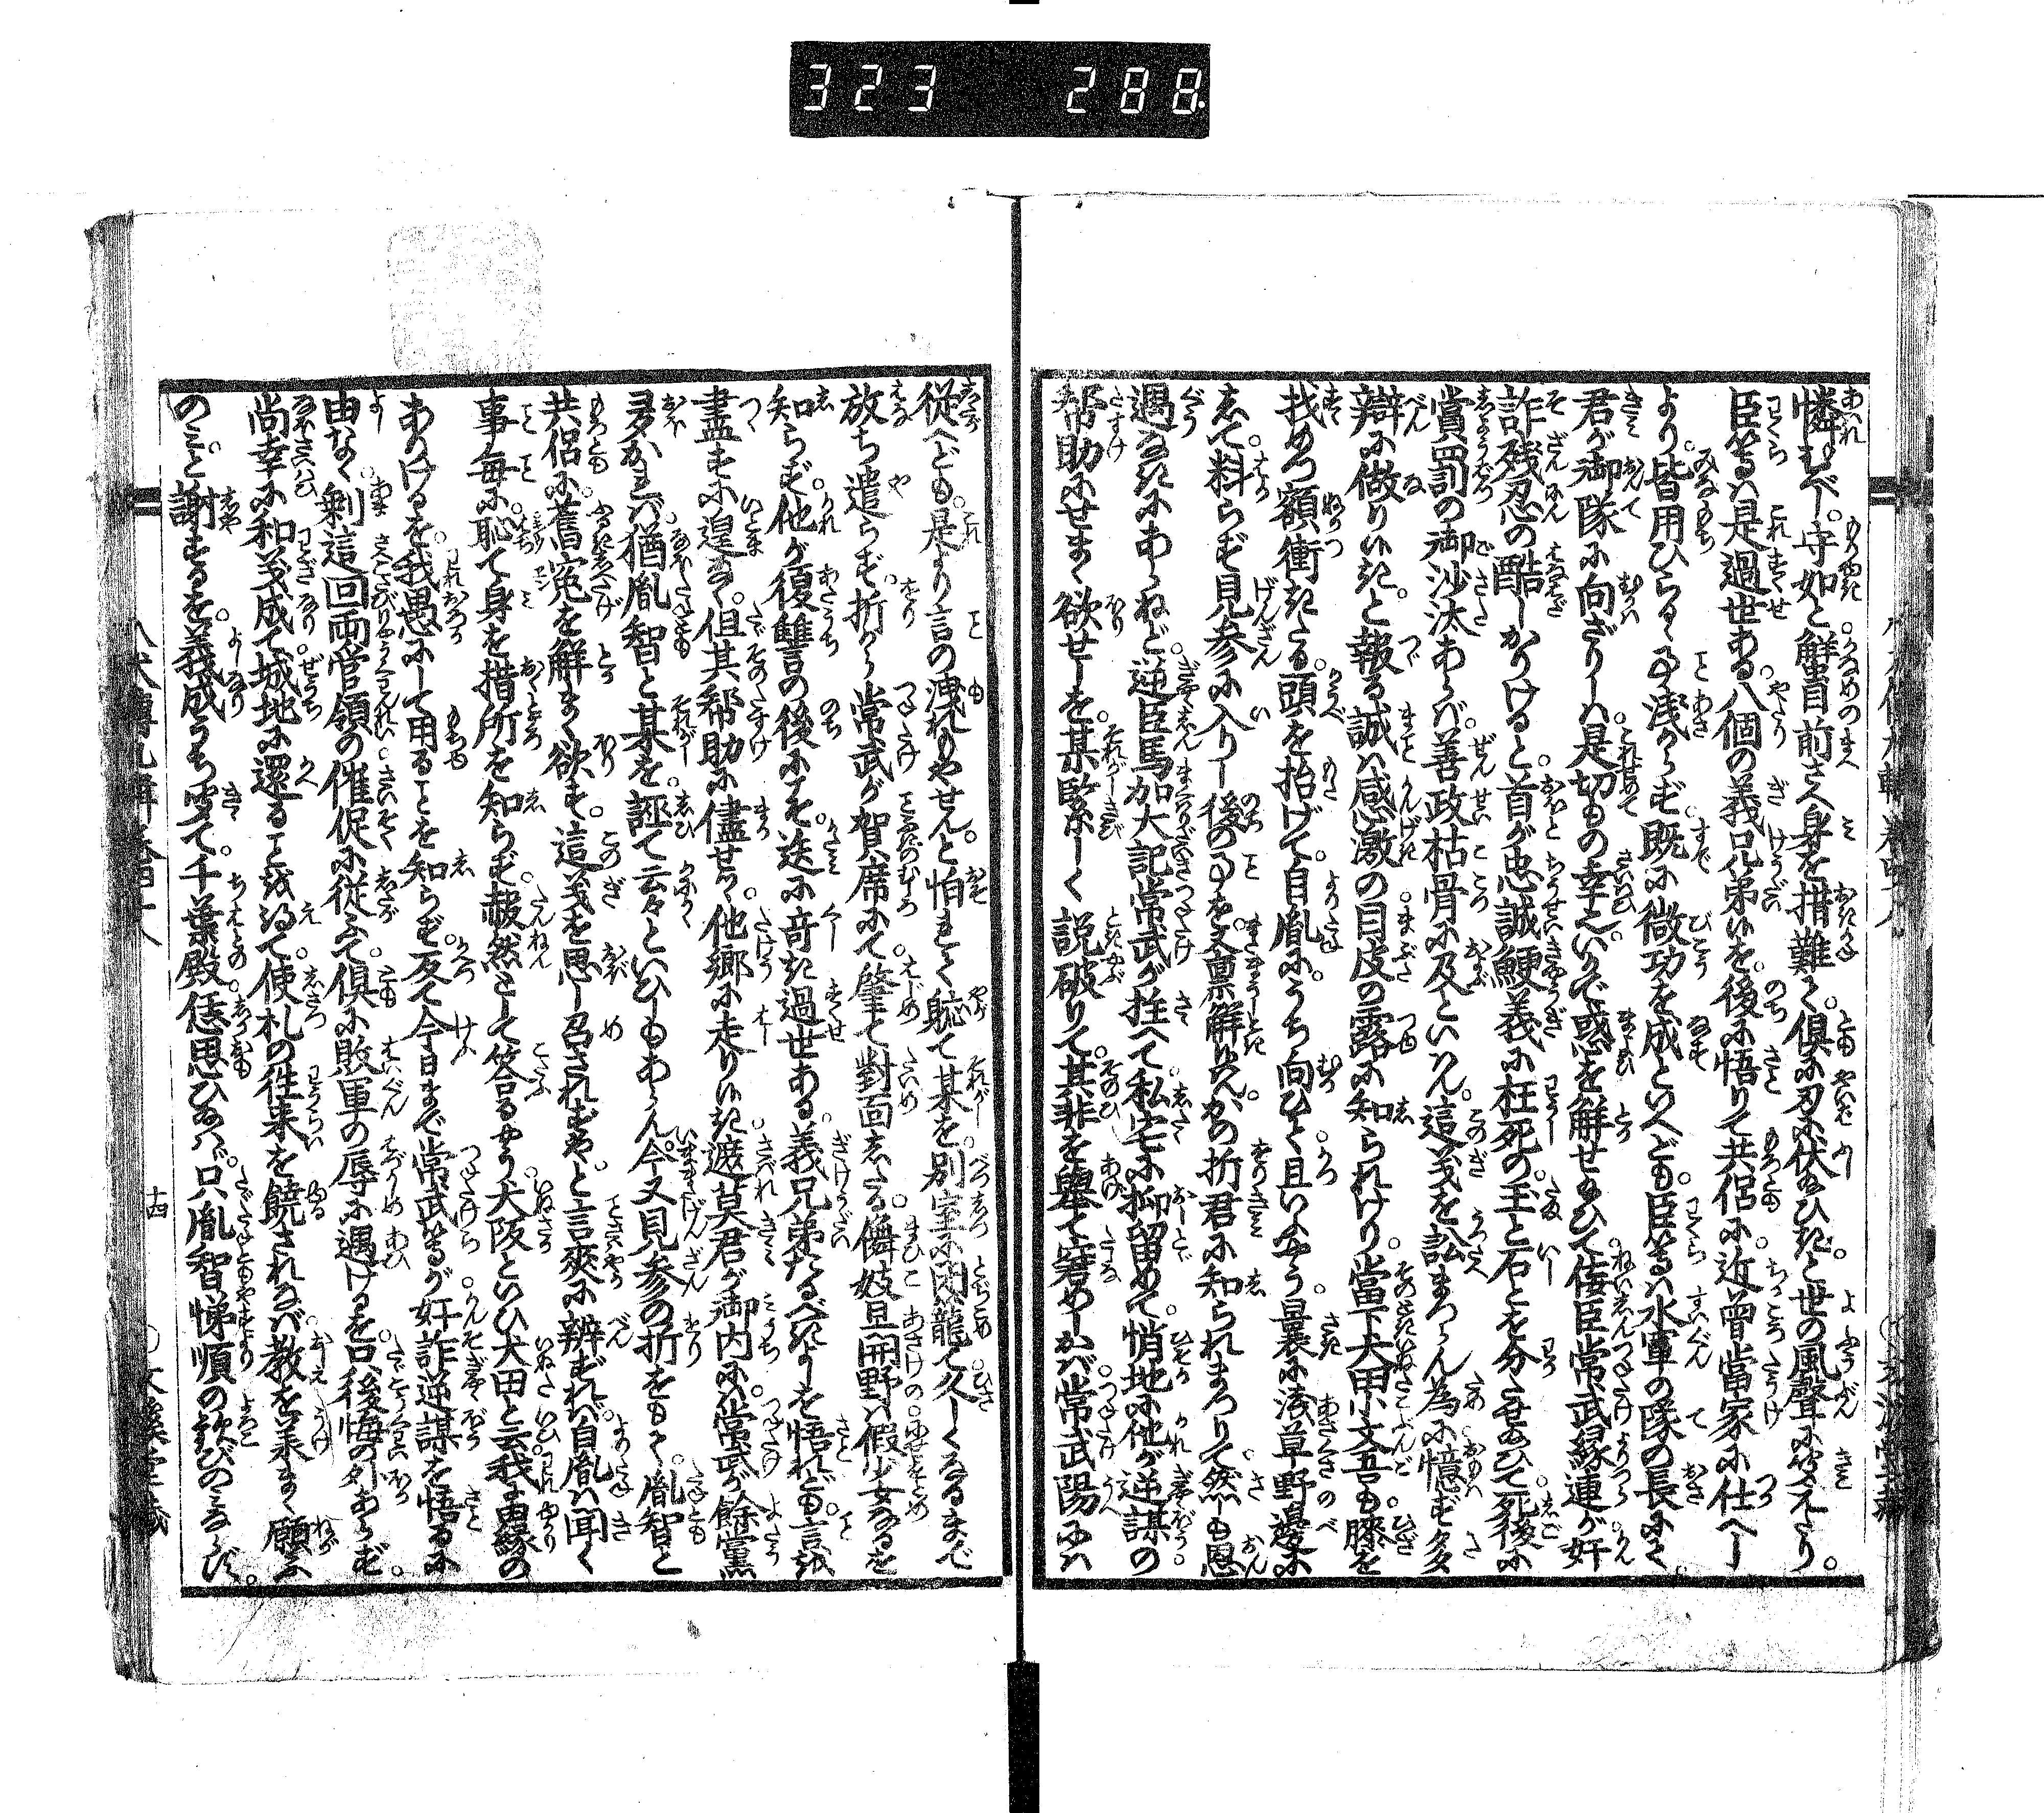 323 288
憐むべし。守如と蟹目前さへ身を措難て。倶に刃に伏給ひきと世の風聲に听えたり。
臣等は是過世ある。八個の義兄弟なるを。後に悟りて共侶に。近曾當家に仕へしより。
皆用ひらるゝ事浅からず。既に微功を成といへども。臣等は水軍の隊の長にて。
君が御隊に向ざりしは是切もの幸也。いかで惑を解せ給ひて。佞臣常武縁連が奸
詐残忍の酷しかりけると。首が忠誠鯁義に枉死の。玉と石とを分たせ給ひて。死後に
賞罰の御沙汰あらば。善政枯骨に及といはん。這義を訟まつらん為に憶ず多
辯に做りにきと。報る誠は感激の目皮の露に知られけり。當下犬田小文吾も。膝を
找めつ額衝きたる。頭を抬げて。自胤にうち向ひて。且いふやう。曩に浅草野邊に
して。料らず見参に入りし後の事を。又稟解ゆはん。かの折君に知られまつりて。然しも恩
遇なきにあらねど。逆臣馬加大記常武が拄へて。私宅に抑留めて。悄地に他が逆謀の
帮助にせまく欲せしを。某緊しく説破りて。其非を擧て窘めしかば。常武陽には
従へども。是より言の洩れもやせん。と怕れて。軈て某を。別室に閉籠て。久しくなるまで
放ち遣らず。折から常武が賀席にて。肇て對面したる。儛妓旦開野は。假少女なるを
知らず。他が復讐の後にこそ。迭に奇き過世ある。義兄弟たるべきよしを悟れども。言
盡すに遑なく。但其帮助に儘せつゝ。他郷に走りにき。遮莫君が御内には。常武が餘黨
多かれば。猶胤智と某を。誣て云云といひしもあらん。今又見参の折をもて。胤智と
共侶に。舊寃を解まく欲す。這義を思し召されずや。と言爽に辨ずれば。自胤は聞く
事毎に恥て。身を措所を知らず。赧然として答るやう。犬阪といひ犬田と云。我に由縁の
ありけるを。我愚にして用ることを知らず。反て今日まで常武等が奸詐逆謀を悟るに
由なく。剰這回両管領の催促に従ふて。倶に敗軍の辱に遇けるを。只後悔の外あらず。
尚幸に和義成て城地に還ることを得て。使札の徃来を饒されなば。教を羨まく願ふ
のみ。と謝するを。義成うち聞て。千葉殿恁思ひ給はゞ。只胤智悌順の歓びのみならず。
八犬傳九輯巻四十八
十四
文溪堂藏